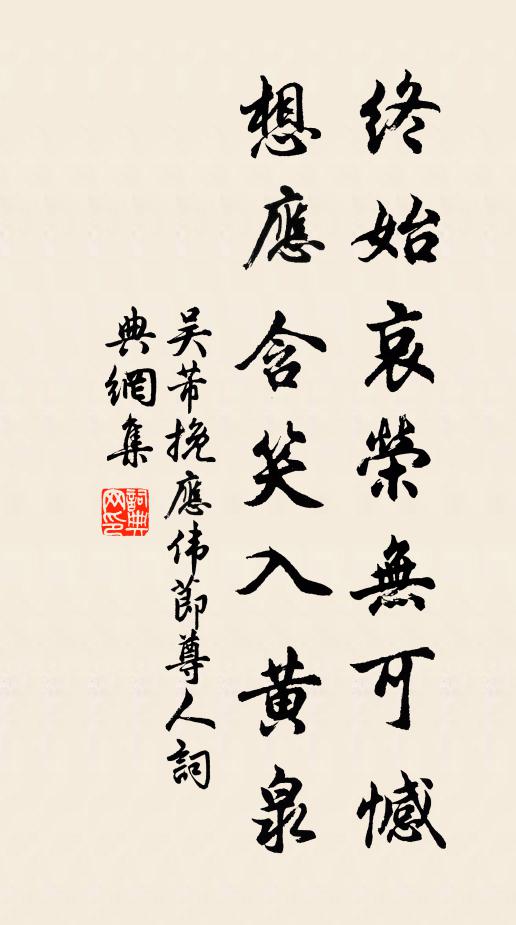 終始哀榮無可憾
想應含笑入黃泉
吳芾挽應伟節尊人詞
典網集
詞典网印